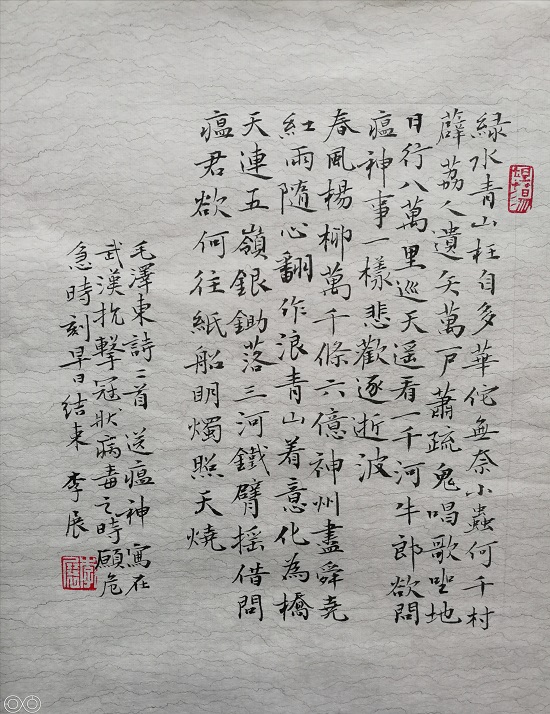 緑水青山枉自多華佗無奈小蟲何千村
薜荔人遺矢萬戸蕭疏鬼唱歌坐地
日行八萬里巡天遥看一千河牛郎欲問
瘟神事一樣悲歡逐逝波
春風楊柳萬千條六億神州盡舜堯
紅雨隨心翻作浪青山着意化為橋
天連五嶺銀鋤落三河鐵臂揺借問
瘟君欲何往紙船明燭照天燒
毛澤東詩二首 送瘟神 寫在
武漢抗擊冠狀病毒之時願危
急時刻早日結束 李展
李展